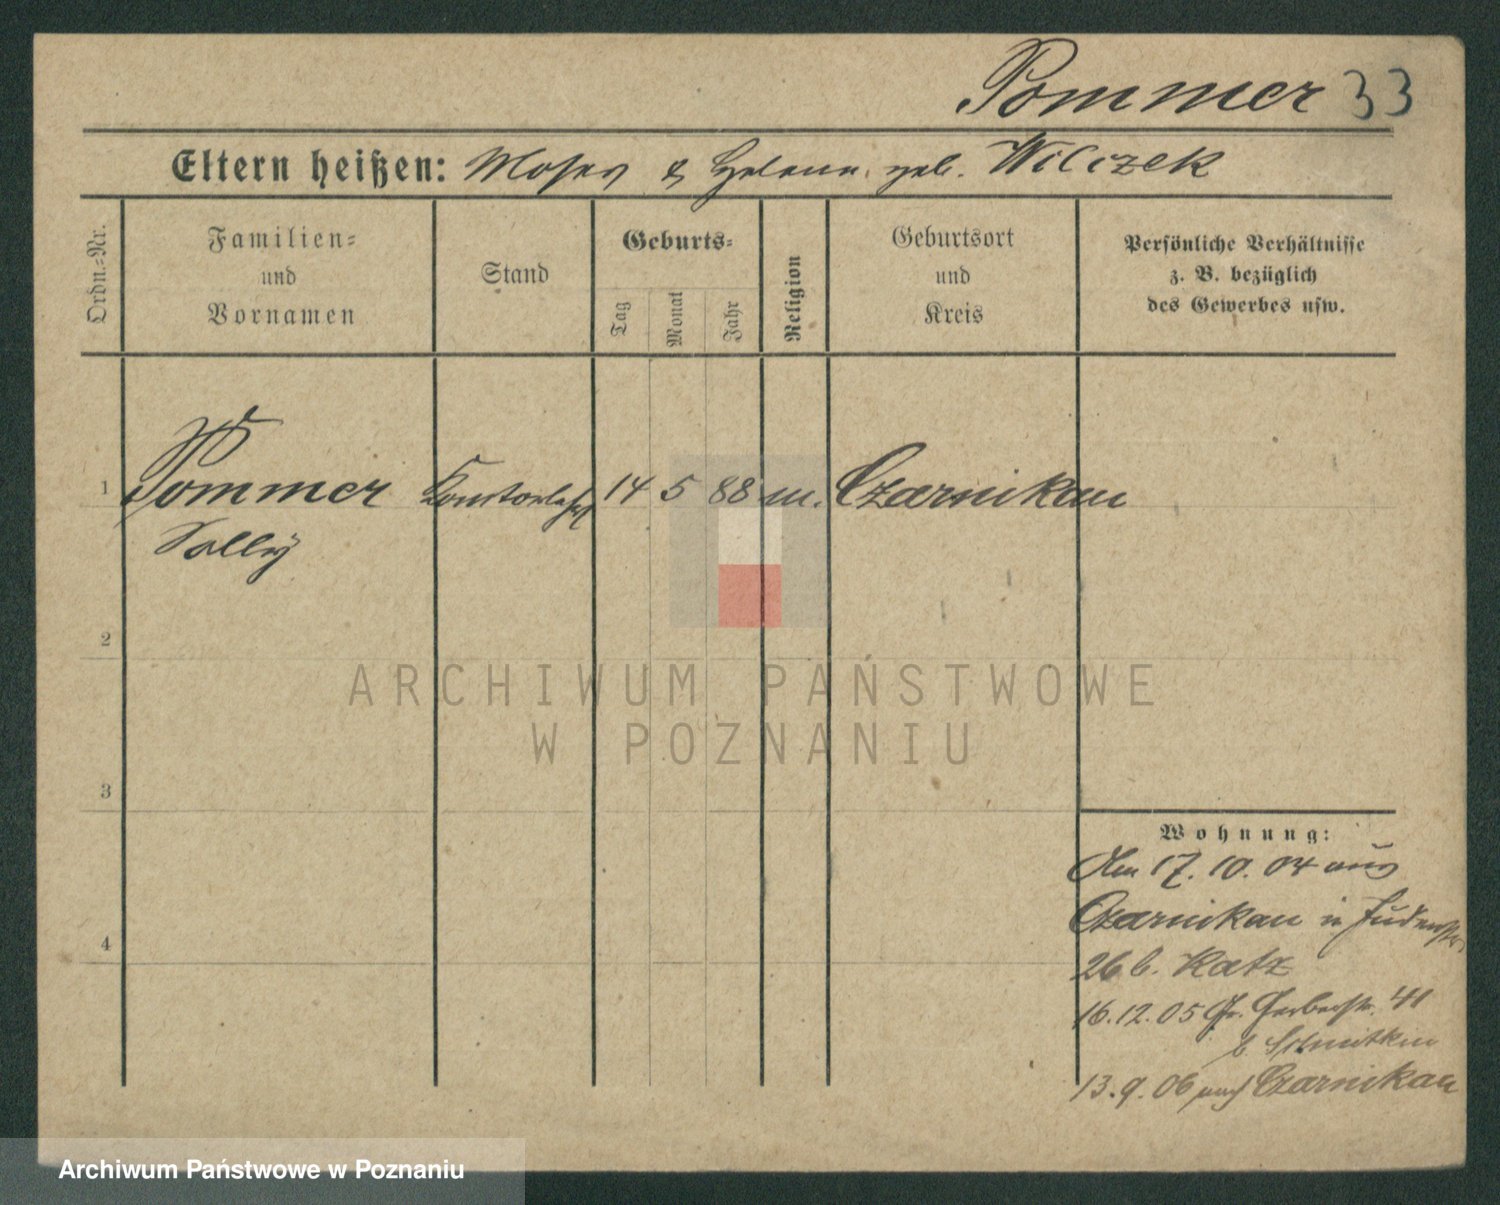 Pommer 33
Eltern heißen: Moses & Helene geb. Wilczek
Ordn.-Nr.
Familien-
und
Vornamen
Stand
Geburts-
Tag
Monat
Jahr
Religion
Geburtsort
und
Kreis
Persönliche Verhältnisse
z. B. bezüglich
des Gewerbes usw.
1 Pommer 14 5 88 m. Czarnikau
Sally
2
3
4
Wohnung:
Am 17. 10. 04 aus
Czarnikau in Judenstr.
26 b. Katz
16.12.05 Gr. Gerberstr. 41
b
13.9.06 nach Czarnikau
ARCHIWUM PAŃSTWOWE
W POZNANIU
Archiwum Państwowe w Poznaniu